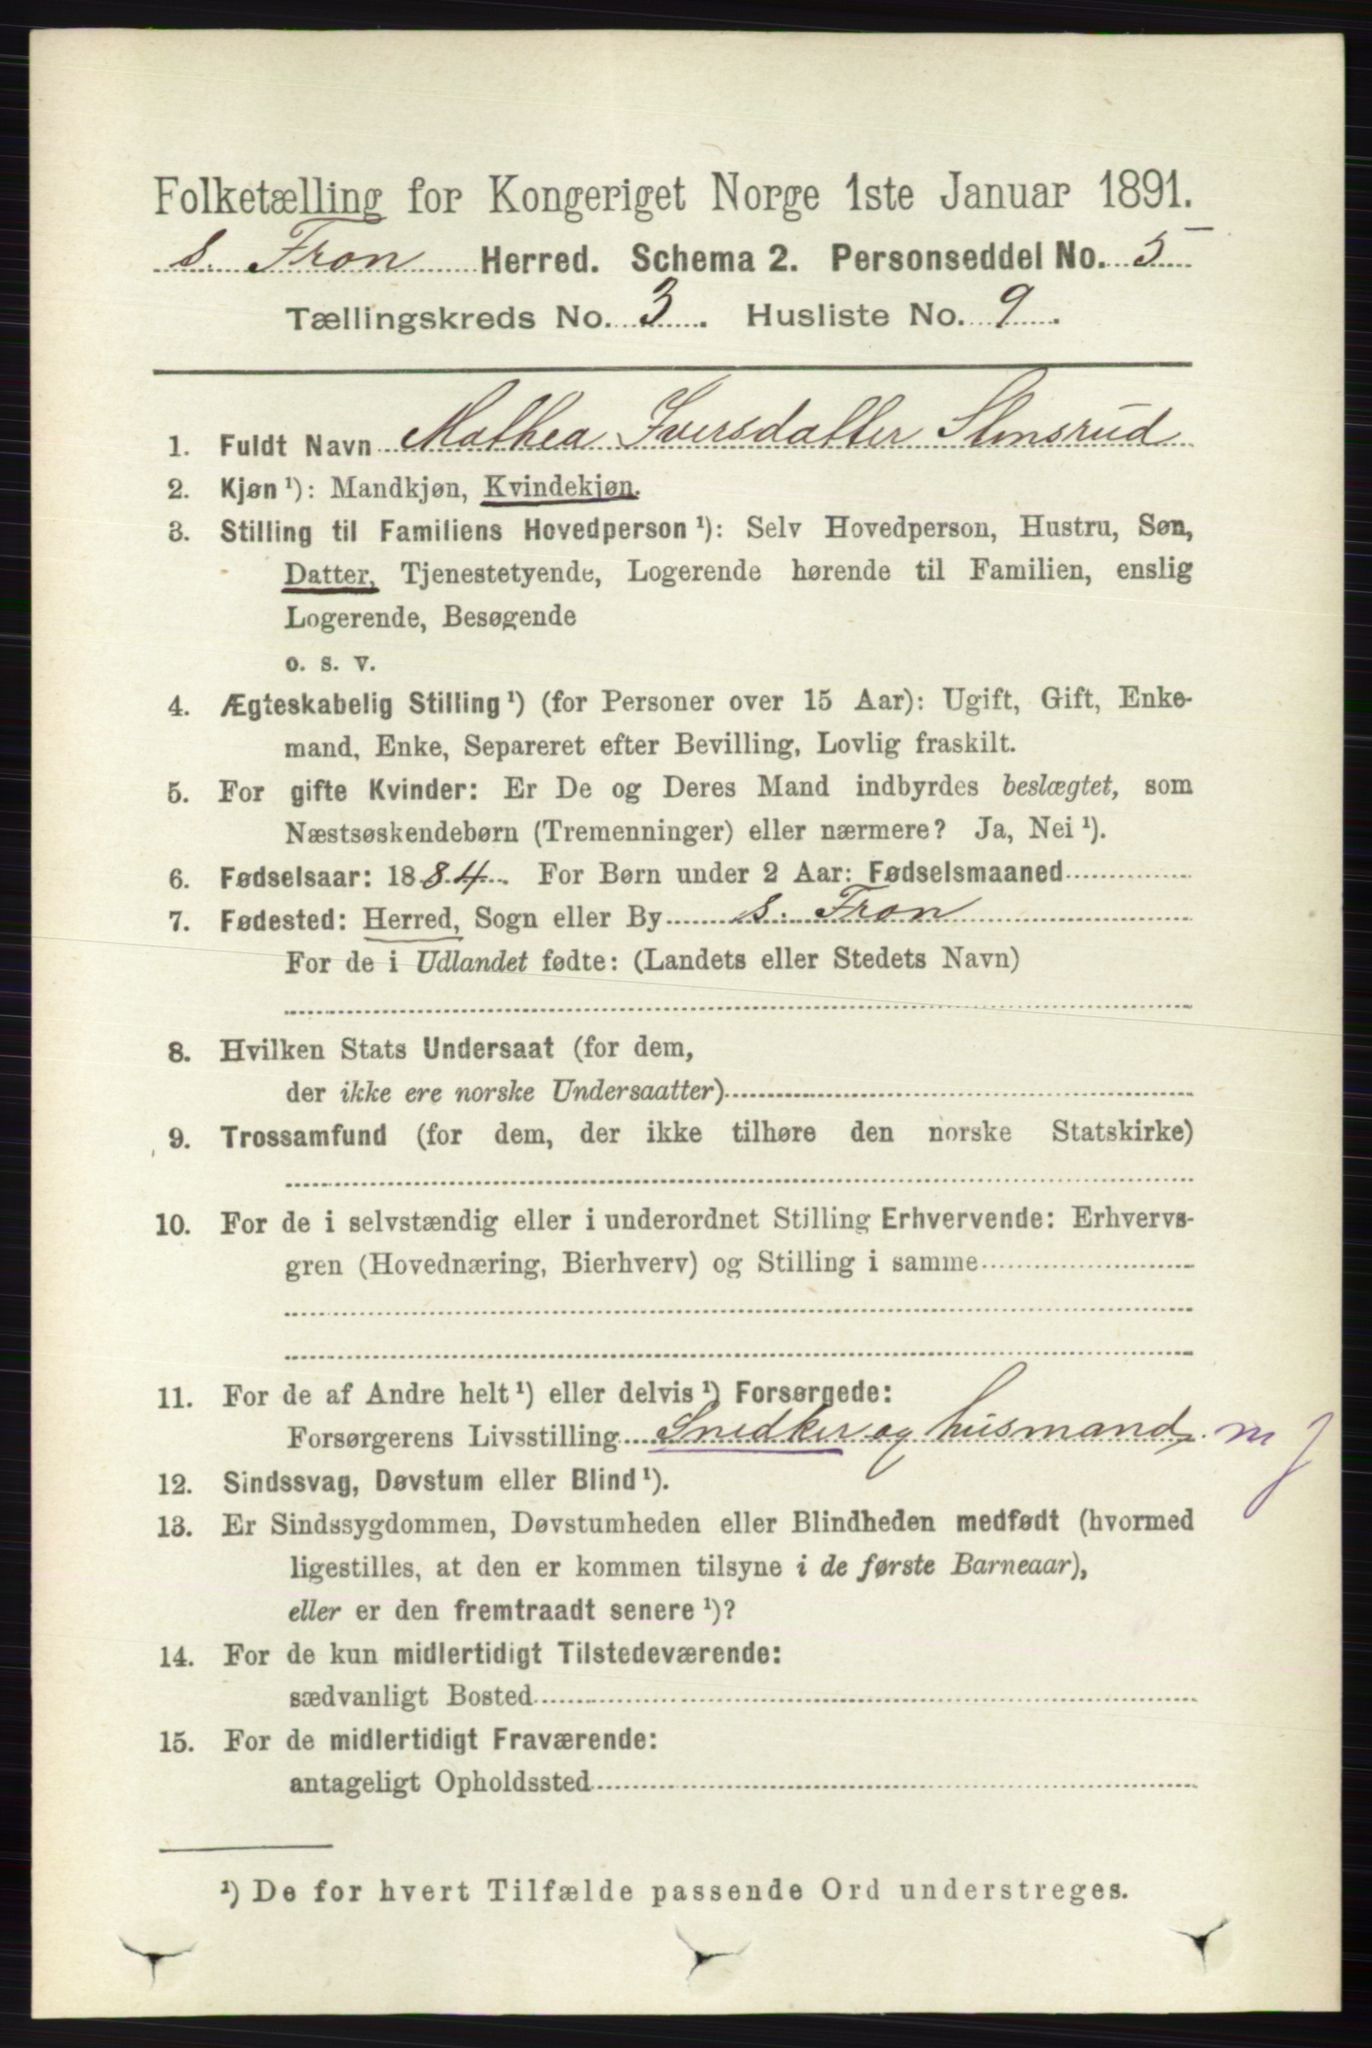 Folketælling for Kongeriget Norge 1ste Januar 1891.
s. Fron Herred. Schema 2. Personseddel No. 5
Tællingskreds No. 3. Husliste No. 9.
1. Fuldt Navn Mathea Iversdatter Stensrud
2. Kjøn ¹): Mandkjøn, Kvindekjøn.
3. Stilling til Familiens Hovedperson ¹): Selv Hovedperson, Hustru, Søn,
Datter, Tjenestetyende, Logerende hørende til Familien, enslig
Logerende, Besøgende
o. s. v.
4. Ægteskabelig Stilling ¹) (for Personer over 15 Aar): Ugift, Gift, Enke-
mand, Enke, Separeret efter Bevilling, Lovlig fraskilt.
5. For gifte Kvinder: Er De og Deres Mand indbyrdes beslægtet, som
Næstsøskendebørn (Tremenninger) eller nærmere? Ja, Nei ¹).
6. Fødselsaar: 1884. For Børn under 2 Aar: Fødselsmaaned
7. Fødested: Herred, Sogn eller By s. Fron
For de i Udlandet fødte: (Landets eller Stedets Navn)
8. Hvilken Stats Undersaat (for dem,
der ikke ere norske Undersaatter)
9. Trossamfund (for dem, der ikke tilhøre den norske Statskirke)
10. For de i selvstændig eller i underordnet Stilling Erhvervende: Erhvervs-
gren (Hovednæring, Bierhverv) og Stilling i samme
11. For de af Andre helt ¹) eller delvis ¹) Forsørgede:
Forsørgerens Livsstilling Snedker og husmand m J
12. Sindssvag, Døvstum eller Blind ¹).
13. Er Sindssygdommen, Døvstumheden eller Blindheden medfødt (hvormed
ligestilles, at den er kommen tilsyne i de første Barneaar),
eller er den fremtraadt senere ¹)?
14. For de kun midlertidigt Tilstedeværende:
sædvanligt Bosted
15. For de midlertidigt Fraværende:
antageligt Opholdssted
¹) De for hvert Tilfælde passende Ord understreges.